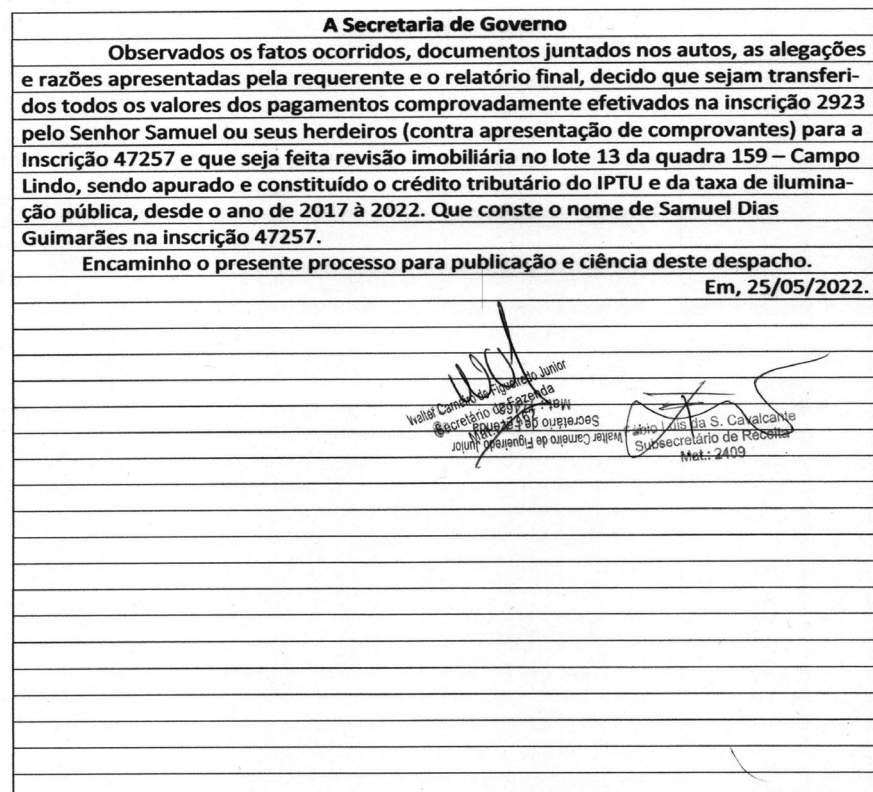 A Secretaria de Governo
Observados os fatos ocorridos, documentos juntados nos autos, as alegações
e razões apresentadas pela requerente e o relatório final, decido que sejam transferi-
dos todos os valores dos pagamentos comprovadamente efetivados na inscrição 2923
pelo Senhor Samuel ou seus herdeiros (contra apresentação de comprovantes) para a
Inscrição 47257 e que seja feita revisão imobiliária no lote 13 da quadra 159 – Campo
Lindo, sendo apurado e constituído o crédito tributário do IPTU e da taxa de ilumina-
ção pública, desde o ano de 2017 à 2022. Que conste o nome de Samuel Dias
Guimarães na inscrição 47257.
Encaminho o presente processo para publicação e ciência deste despacho.
Em, 25/05/2022.
Walter Carneiro de Figueiredo Junior
Secretário de Fazenda
Mat.:
Walter Carneiro de Figueiredo Junior
Secretário de Fazenda
Mat.:
Fábio Luis da S. Cavalcante
Subsecretário de Receita
Mat.: 2409